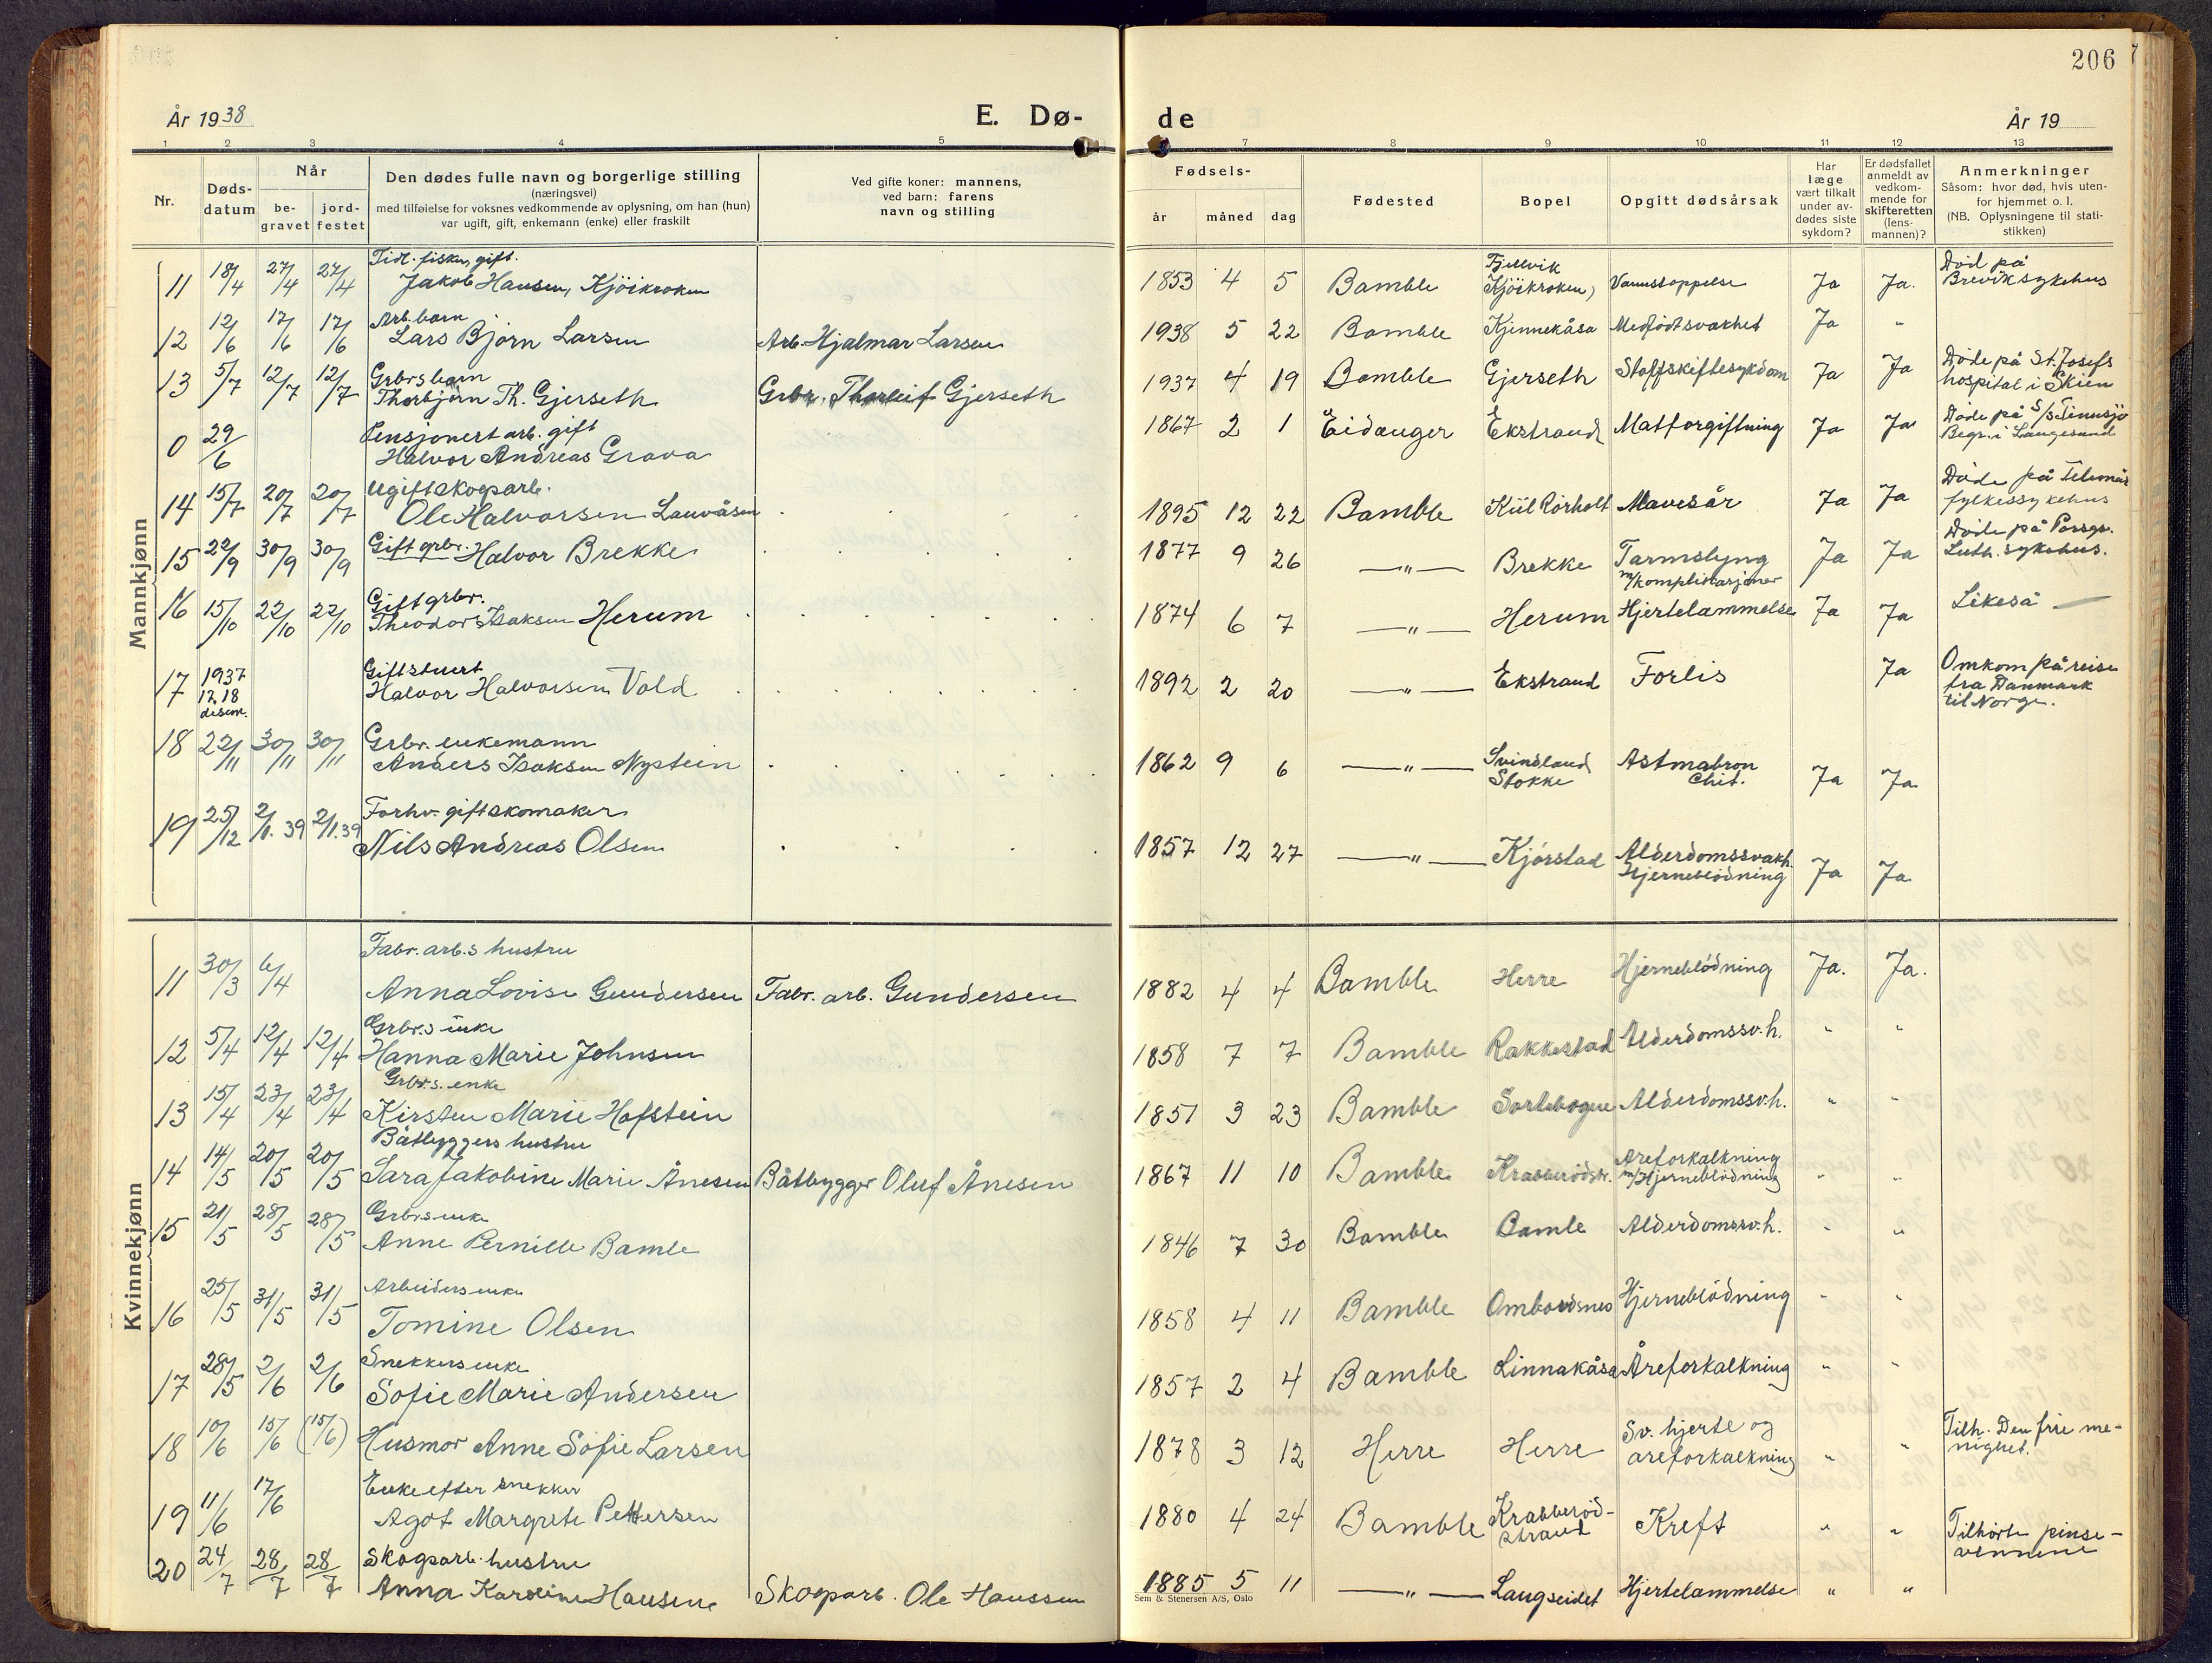 206
År 1938
E. Dø-
de
År 19
1 2 3 4 5 7 8 9 10 11 12 13
Nr.
Døds-
datum
Når
be-
gravet
jord-
festet
Den dødes fulle navn og borgerlige stilling
(næringsvei)
med tilføielse for voksnes vedkommende av oplysning, om han (hun)
var ugift, gift, enkemann (enke) eller fraskilt
Ved gifte koner: mannens,
ved barn: farens
navn og stilling
Fødsels-
år måned dag
Fødested
Bopel
Opgitt dødsårsak
Har
læge
vært tilkalt
under av-
dødes siste
sykdom?
Er dødsfallet
anmeldt av
vedkom-
mende for
skifteretten
(lens-
mannen)?
Anmerkninger
Såsom: hvor død, hvis uten-
for hjemmet o. l.
(NB. Oplysningene til stati-
stikken)
Mannkjønn
Tidl. fisker, gift.
11 18/4 27/4 27/4 Jakob Hansen, Kjöikroken 1853 4 5 Bamble Kjöikroken Vannstoppelse Ja Ja. Död på
Brevik sykehus
Arb. barn
12 12/6 17/6 17/6 Lars Bjørn Larsen Arb. Hjalmar Larsen 1938 5 22 Bamble Kjennekåsa Medfödt svakhet Ja "
Grbrs barn
13 5/7 12/7 12/7 Thorbjørn Th. Gjerseth Grbr. Thorleif Gjerseth 1937 4 19 Bamble Gjerseth Stoffskiftesykdom Ja Ja Döde på St. Josefs
hospital i Skien
Pensjonert arb. gift
0 29/6 Halvor Andreas Grava 1867 2 1 Eidanger Ekstrand Matforgiftning Ja Ja Döde på S/S Tinnsjø
Begr. i Langesund
Ugift skogsarb.
14 15/7 20/7 20/7 Ole Halvorsen Lauvåsen 1895 12 22 Bamble Kiil Rörholt Mavesår Ja Ja Döde på Telemark
fylkessykehus
15 22/9 30/9 30/9 Gift grbr. Halvor Brekke 1877 9 26 —"— Brekke Tarmslyng
m/komplikasjoner Ja Ja Döde på Porsgr.
Luth. sykehus.
Gift grbr.
16 15/10 22/10 22/10 Theodor Isaksen Herum 1874 6 7 —"— Herum Hjertelammelse Ja Ja Likeså —
Gift stuert
17 1937 17,18 desem. Halvor Halvorsen Vold 1892 2 20 —"— Ekstrand Forlis Ja Omkom på reise
fra Danmark
til Norge.
Grbr. enkemann
18 22/11 30/11 30/11 Anders Isaksen Nystein 1862 9 6 —"— Svinsland
Stokke Astma bron
chit. Ja Ja
Forhv. gift skomaker
19 25/12 2/1.39 2/1.39 Nils Andreas Olsen 1857 12 27 —"— Kjørstad Alderdomssvakh.
Hjerneblödning Ja Ja
Kvinnekjønn
Fabr. arb.s hustru
11 30/3 6/4 Anna Lovise Gundersen Fabr. arb. Gundersen 1882 4 4 Bamble Herre Hjerneblödning Ja. Ja.
Grbr.s enke
12 5/4 12/4 12/4 Hanna Marie Johnsen 1858 7 7 Bamble Rakkestad Alderdomssv.h. " "
Grbr.s. enke
13 15/4 23/4 23/4 Kirsten Marie Hafstein 1851 3 23 Bamble Sortebogen Alderdomssv.h. " "
Båtbyggers hustru
14 14/5 20/5 20/5 Sara Jakobine Marie Ånesen Båtbygger Oluf Ånesen 1867 11 10 Bamble Krabberödstr. Åreforkalkning
m/Hjerneblödning " "
Grbrs enke
15 21/5 28/5 28/5 Anne Pernille Bamle 1846 7 30 Bamble Bamle Alderdomssv.h. " "
Arbeiders enke
16 25/5 31/5 31/5 Tomine Olsen 1858 4 11 Bamble Ombordsnes Hjerneblödning " "
Snekkers enke
17 28/5 2/6 2/6 Sofie Marie Andersen 1857 2 4 Bamble Linnakåsa Åreforkalkning " "
18 10/6 15/6 (15/6) Husmor Anne Sofie Larsen 1878 3 12 Herre Herre Sv. hjerte og
åreforkalkning " " Tilh. Den frie me-
nighet.
Enke efter snekker
19 11/6 17/6 Agot Margrete Pettersen 1880 4 24 Bamble Krabberöd-
strand Kreft " " Tilhörte pinse-
vennene
Skogsarb. hustru
20 24/7 28/7 28/7 Anna Karoline Hansen Skogsarb. Ole Hanssen 1885 5 11 —"— Langseidet Hjertelammelse " "
Sem & Stenersen A/S, Oslo